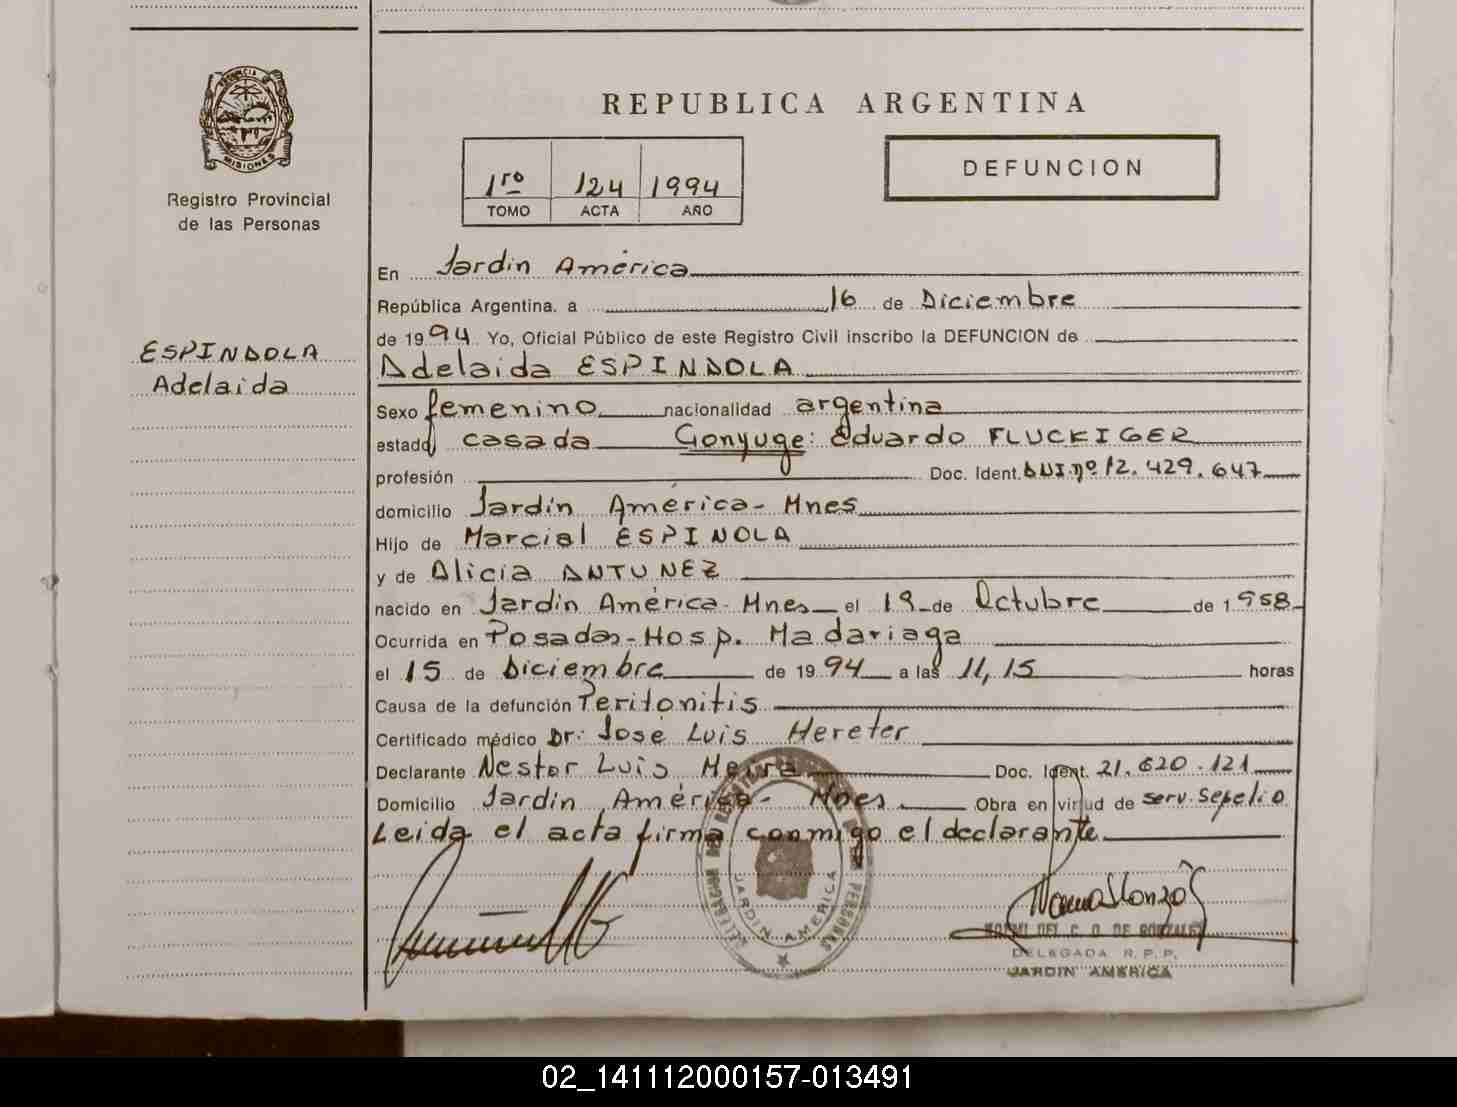 PROVINCIA D
MISIONES
Registro Provincial
de las Personas
ESPINDOLA
Adelaida
REPUBLICA ARGENTINA
1ro 124 1994
TOMO ACTA AÑO
DEFUNCION
En Jardín América
República Argentina. a 16 de Diciembre
de 1994 Yo, Oficial Público de este Registro Civil inscribo la DEFUNCION de
Adelaida ESPINDOLA
Sexo femenino nacionalidad argentina
estado casada Conyuge: Eduardo FLUCKIGER
profesión Doc. Ident. DNI. nº 12.429.647
domicilio Jardín América - Mnes
Hijo de Marcial ESPINOLA
y de Alicia ANTUNEZ
nacido en Jardín América - Mnes el 19 de Octubre de 1958
Ocurrida en Posadas - Hosp. Madariaga
el 15 de Diciembre de 1994 a las 11,15 horas
Causa de la defunción Peritonitis
Certificado médico Dr: José Luis Hereter
Declarante Nestor Luis Meira Doc. Ident. 21.620.121
Domicilio Jardín América - Mnes Obra en virtud de serv. Sepelio
Leida el acta firma conmigo el declarante
JARDIN AMERICA
DEL C. D. DE GONZALEZ
DELEGADA R.P.P.
JARDIN AMERICA
02_141112000157-013491